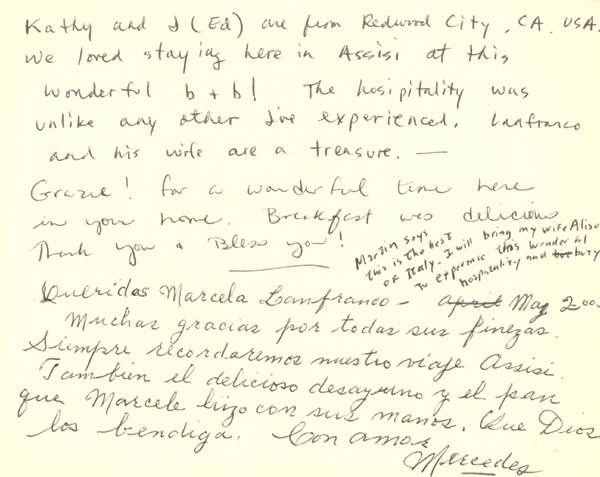 Kathy and I (Ed) are from Redwood City, CA. USA.
We loved staying here in Assisi at this
wonderful b + b! The hosipitality was
unlike any other I've experienced. Lanfranco
and his wife are a treasure. —
Grazie! for a wonderful time here
in your home. Breakfast was delicious
Thank you & Bless you!
Martin says
this is the best
of Italy. I will bring my wife Alison
to experience this wonderful
hospitality and
Queridos Marcela Lanfranco - April May 200
Muchas gracias por todas sus finezas.
Siempre recordaremos nuestro viaje Assisi.
Tambien el delicioso desayuno y el pan
que Marcele hizo con sus manos. Que Dios
los bendiga. Con amor
Mercedes